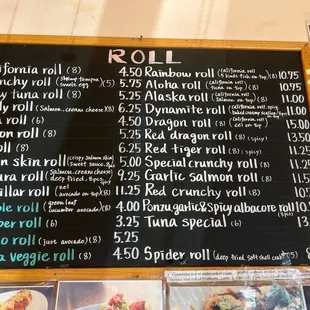 ROLL
ifornia roll (8) 4.50
nchy roll (shrimp tempura) (5) 5.75
y tuna roll (8) 5.25
ly roll (Salmon, cream cheese) (8) 6.25
roll (6)
on roll (8)
oll (8) 5.25
n skin roll (crispy salmon skin, sweet sauce) 5.00
ura roll (Salmon, cream cheese) deep fried 9.25
illar roll (eel avocado on top) (8) 11.25
ble roll (green leaf cucumber avocado) (8) 4.00
ber roll (6) 3.25
o roll (just avocado) (8) 5.25
a veggie roll (8) 4.50
Rainbow roll (california roll, 4 kinds fish on top) (8) 10.75
Aloha roll (california roll tuna on top) (8) 10.75
Alaska roll (california roll Salmon on top) (8) 11.00
Dynamite roll (california roll, spicy) 11.00
Dragon roll (california roll eel on top) (8)
Red dragon roll (8) (spicy)
Red tiger roll (8) (spicy)
Special crunchy roll (8)
Garlic salmon roll (8)
Red crunchy roll (8)
Ponzu garlic & Spicy albacore roll
Tuna special (6)
Spider roll (deep fried soft shell crab) (5)